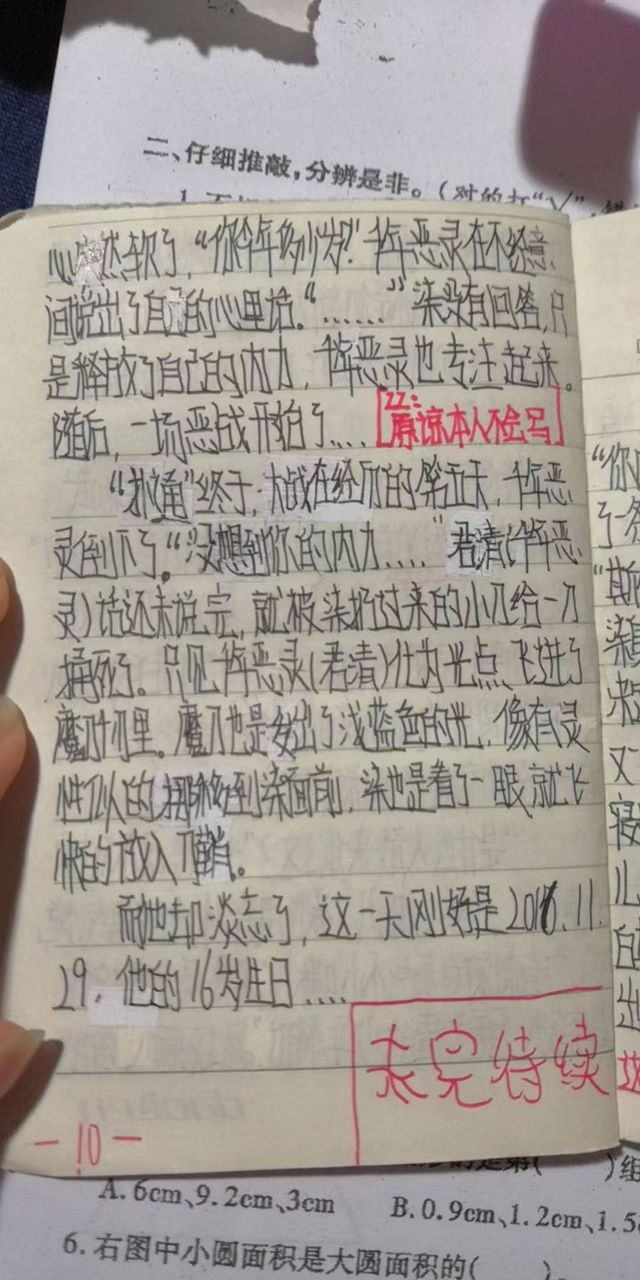 二、仔细推敲,分辨是非。(对的打“√”,错
心突然软了,“你今年多少岁?”韩恶灵在不经意
间说出了自己的心里话。“……”染没有回答,只
是释放了自己的内力,韩恶灵也专注起来。
随后,一场恶战开始了....[ZZ:原谅本人不会写]
“扑通”终于,大战在经历的第五天,韩恶
灵倒下了。“没想到你的内力....”君清(韩恶
灵)话还未说完,就被染扔过来的小刀给一刀
捅死了。只见韩恶灵(君清)化为光点,飞进了
魔刀刀里。魔刀也是发出了浅蓝色的光,像有灵
性似的挪移到染面前,染也是看了一眼,就飞
快的放入刀鞘。
而他却淡忘了,这一天刚好是2016.11.
29.他的16岁生日....
未完待续
-10-
“你
了
“斯
染
来
又
寝
儿
白
出
这
的是第( )组
A.6cm、9.2cm、3cm B.0.9cm、1.2cm、1.5
6.右图中小圆面积是大圆面积的( )